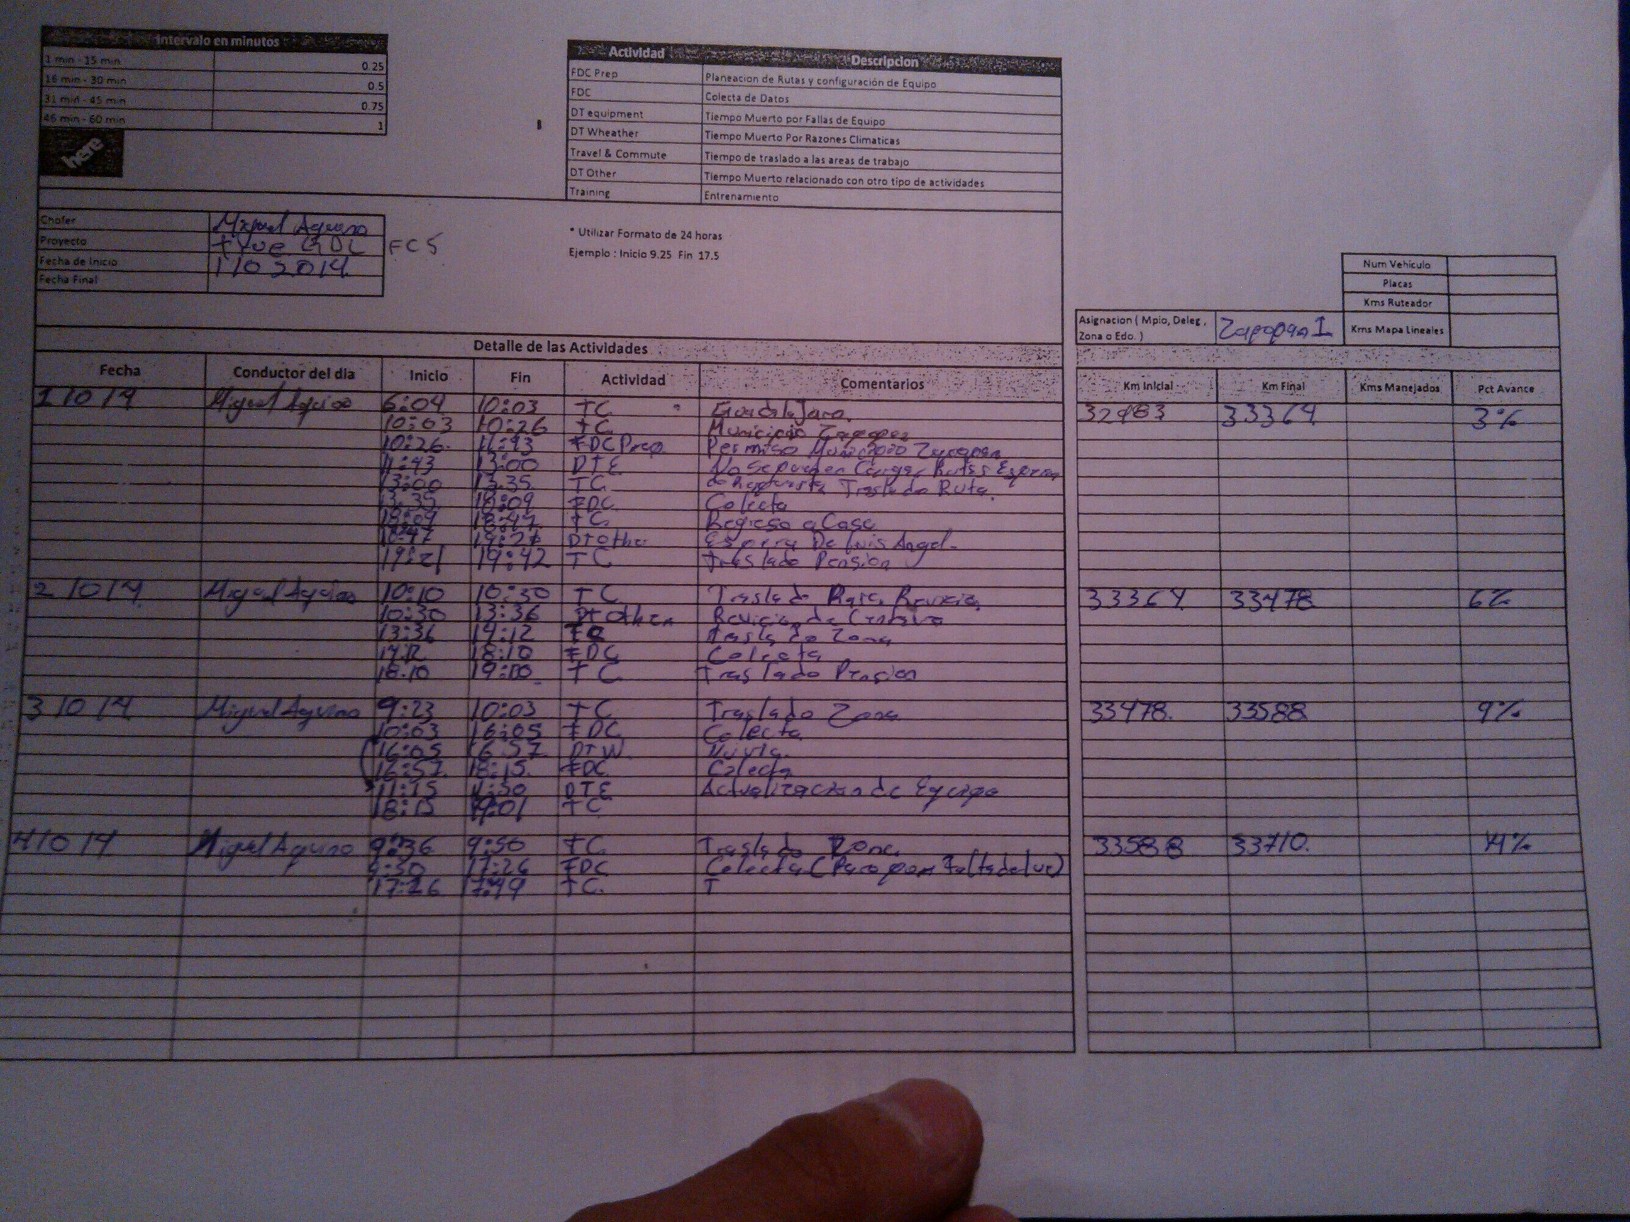 Intervalo en minutos
1 min - 15 min 0.25
16 min - 30 min 0.5
31 min - 45 min 0.75
46 min - 60 min 1
here
Actividad Descripcion
FDC Prep Planeacion de Rutas y configuración de Equipo
FDC Colecta de Datos
DT equipment Tiempo Muerto por Fallas de Equipo
DT Wheather Tiempo Muerto Por Razones Climaticas
Travel & Commute Tiempo de traslado a las areas de trabajo
DT Other Tiempo Muerto relacionado con otro tipo de actividades
Training Entrenamiento
Chofer Miguel Aquino
Proyecto GDL FC5
Fecha de Inicio
Fecha Final
* Utilizar Formato de 24 horas
Ejemplo : Inicio 9.25 Fin 17.5
Num Vehículo
Placas
Kms Ruteador
Kms Mapa Lineales
Asignacion ( Mpio, Deleg ,
Zona o Edo. ) Zapopan 1
Detalle de las Actividades
Fecha Conductor del dia Inicio Fin Actividad Comentarios Km Inicial Km Final Kms Manejados Pct Avance
1 10 14 Miguel Aquino 6:04 10:03 TC Guadalajara 33364 3%
10:03 10:26 TC Municipio Zapopan
10:26 11:43 FDC Prep Permiso Municipio Zapopan
11:43 13:00 DTE No Se pueden Cargar Rutas Espera
13:00 13:35 TC de Respuesta Traslado Ruta.
13:35 18:09 FDC Colecta
18:09 18:47 TC Regreso a Casa
18:47 19:21 DT Other Espera De Luis Angel
19:21 19:42 TC Traslado Pension
2 10 14 Miguel Aquino 10:10 10:30 TC Traslado Para 33364 33478 6%
10:30 13:36 DT Other de
13:36 14:12 TC Traslado Zona
14:12 18:10 FDC Colecta
18:10 19:00 TC Traslado Pension
3 10 14 Miguel Aquino 9:23 10:03 TC Traslado Zona 33478 33588 9%
10:03 16:05 FDC Colecta
16:05 16:57 DTW
16:57 18:15 FDC Colecta
11:15 11:30 DTE Actualizacion de Equipo
18:15 19:01 TC
4 10 14 Miguel Aquino 9:36 9:50 TC Traslado Zona 33588 33710 14%
9:50 17:26 FDC Colecta (Paro por Falta de luz)
17:26 17:49 TC T